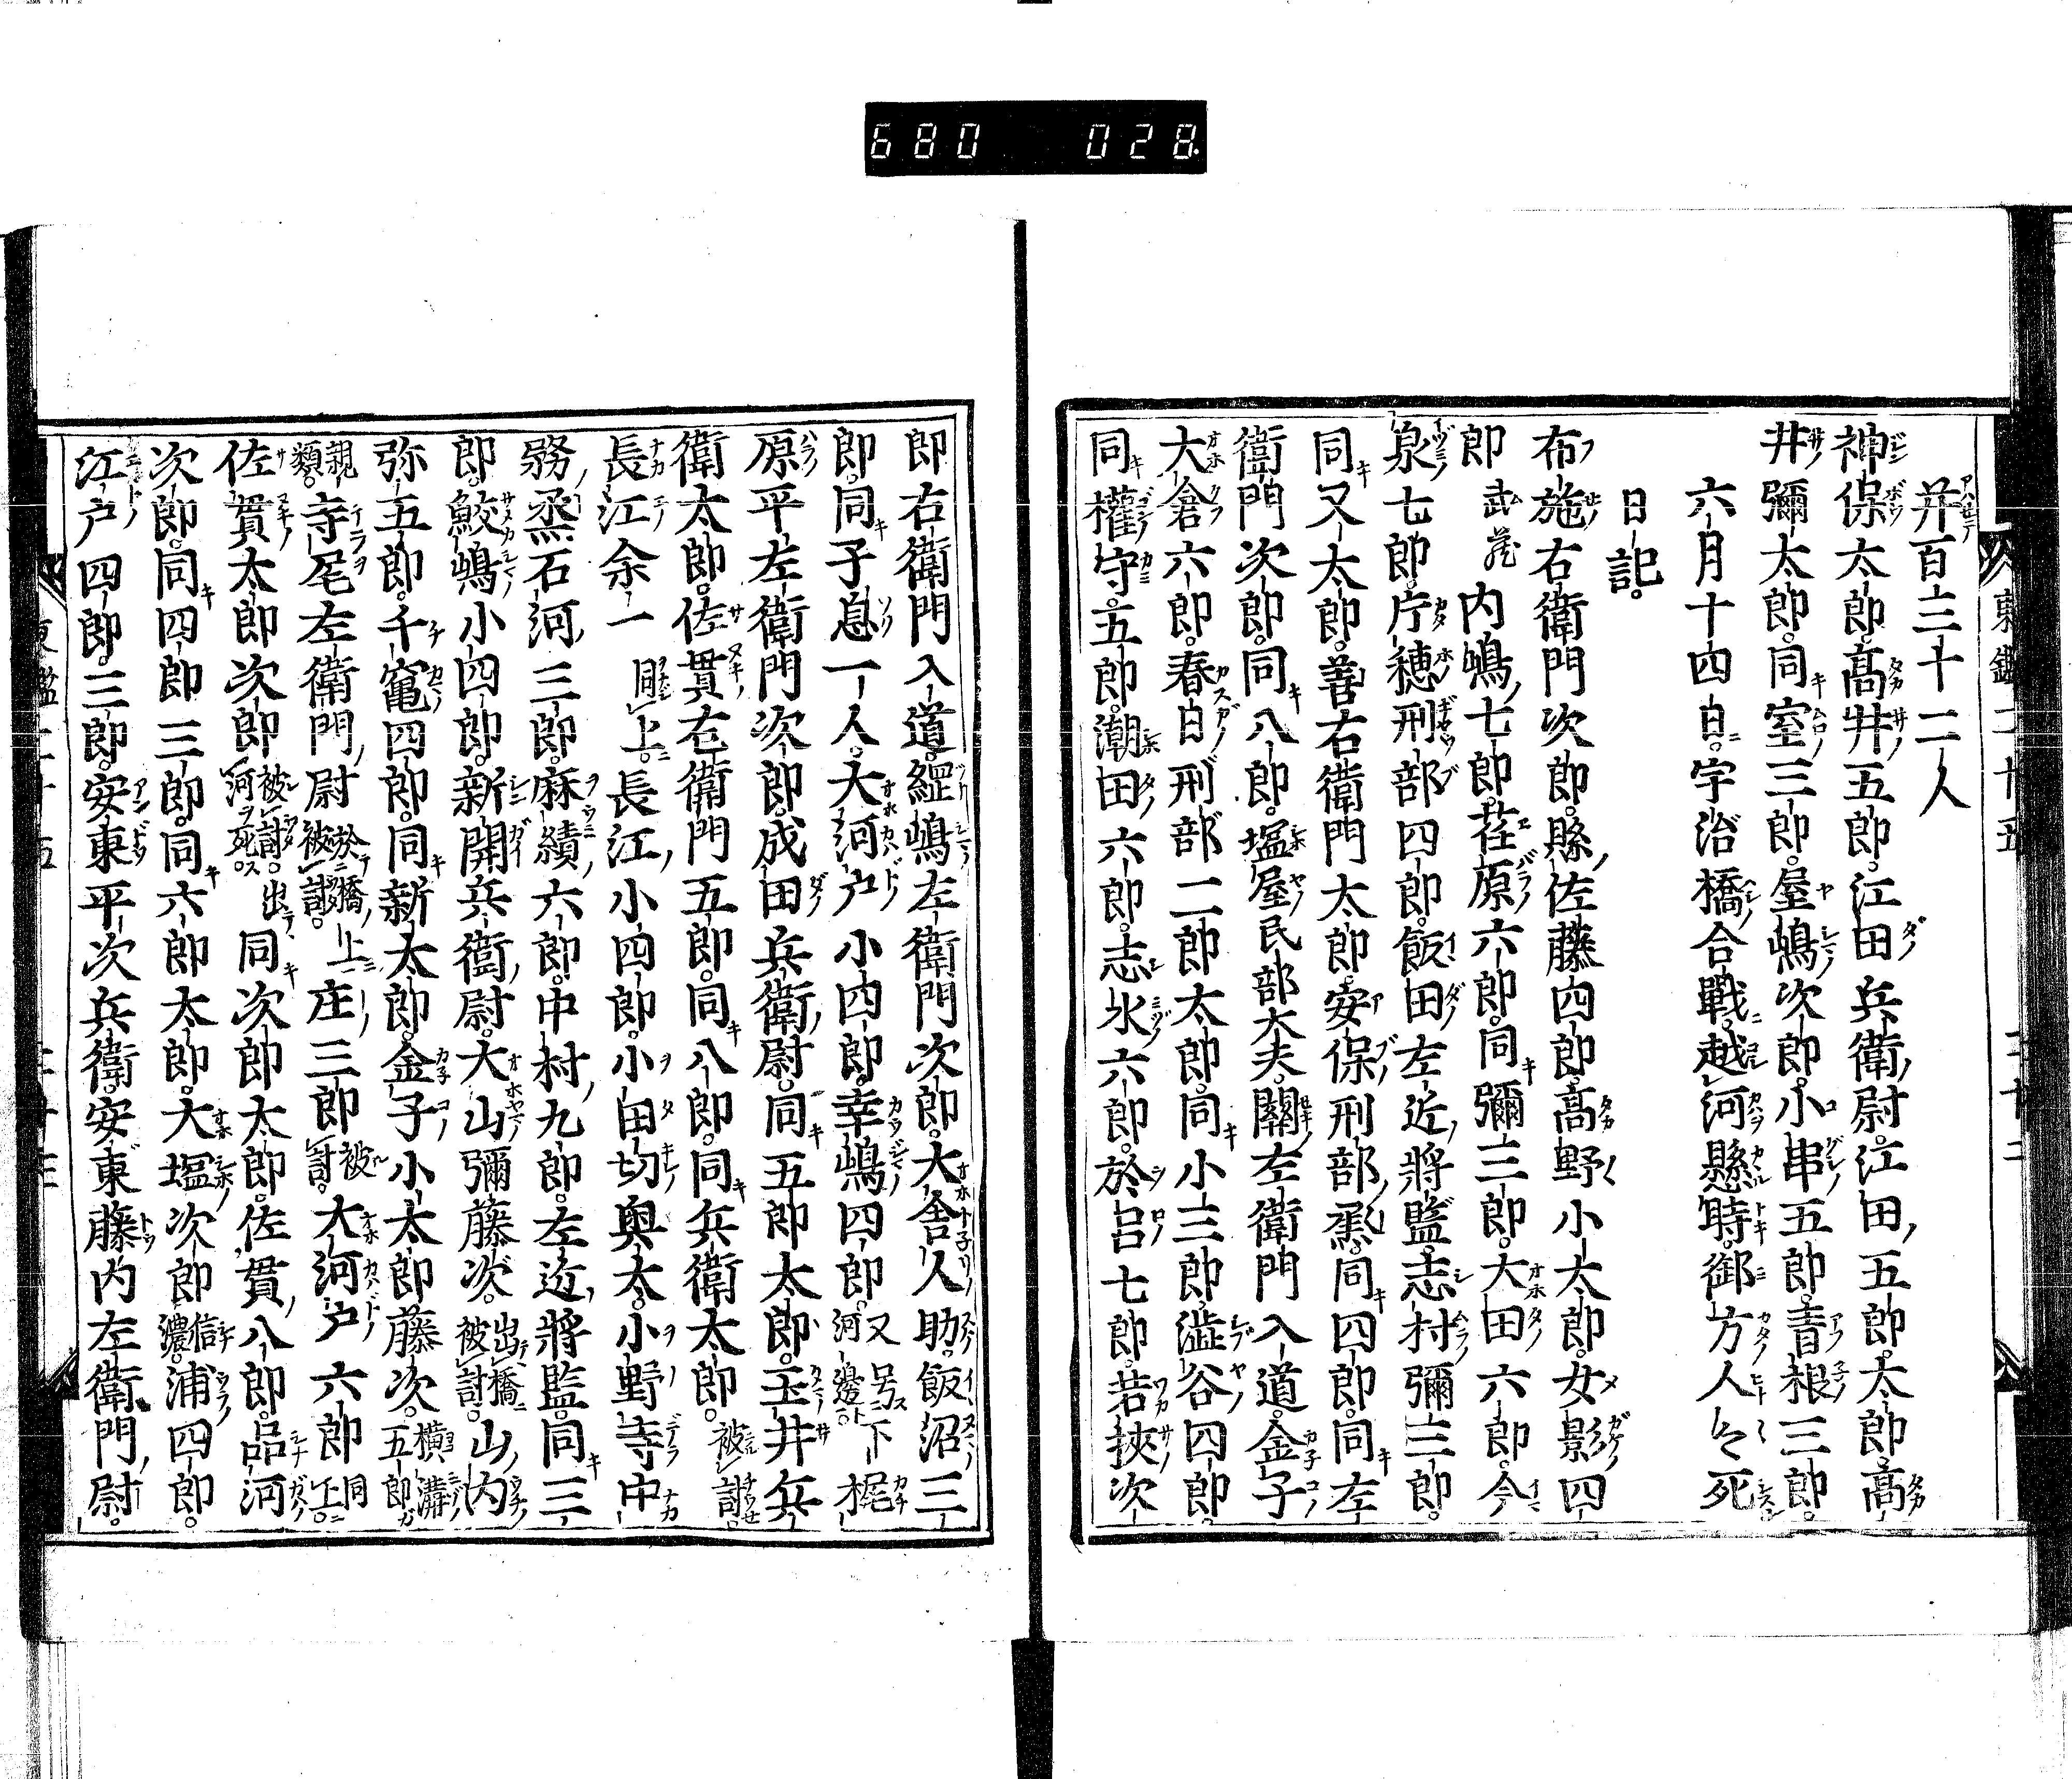 680 028
并百三十二人
神保太郎。高井五郎。江田兵衛尉。江田五郎太郎。高
井彌太郎。同室三郎。屋嶋次郎。小串五郎。青根三郎。
六月十四日。宇治橋合戰。越河懸時。御方人々死
日記。
布施右衛門次郎。縣佐藤四郎。高野小太郎。女影四
郎 武藏 内嶋七郎。荏原六郎。同彌三郎。大田六郎。今
泉七郎。片穂刑部四郎。飯田左近將監。志村彌三郎。
同又太郎。善右衛門太郎。安保刑部丞。同四郎。同左
衛門次郎。同八郎。塩屋民部大夫。關左衛門入道。金子
大倉六郎。春日刑部二郎太郎。同小三郎。澁谷四郎。
同權守五郎。潮田六郎。志水六郎。於呂七郎。若挾次
郎右衛門入道。綛嶋左衛門次郎。大舎人助。飯沼三
郎。同子息一人。大河戸小四郎。幸嶋四郎。又号下河邊ト 梶
原平左衛門次郎。成田兵衛尉。同五郎太郎。玉井兵
衛太郎。佐貫右衛門五郎。同八郎。同兵衛太郎。被討
長江余一 同上。長江小四郎。小田切奥太。小野寺中
務丞。石河三郎。麻績六郎。中村九郎。左近將監。同三
郎。鮫嶋小四郎。新開兵衛尉。大山彌藤次。出橋被討。山内
弥五郎。千竃四郎。同新太郎。金子小太郎。藤次。横溝五郎ガ
親類。寺尾左衛門尉 於橋上被討。庄三郎 被討。大河戸六郎 同上。
佐貫太郎次郎 被討。出河ヲ死ス。同次郎太郎。佐貫八郎。品河
次郎。同四郎三郎。同六郎太郎。大塩次郎 信濃。浦四郎。
江戸四郎三郎。安東平次兵衛。安東藤内左衛門尉。